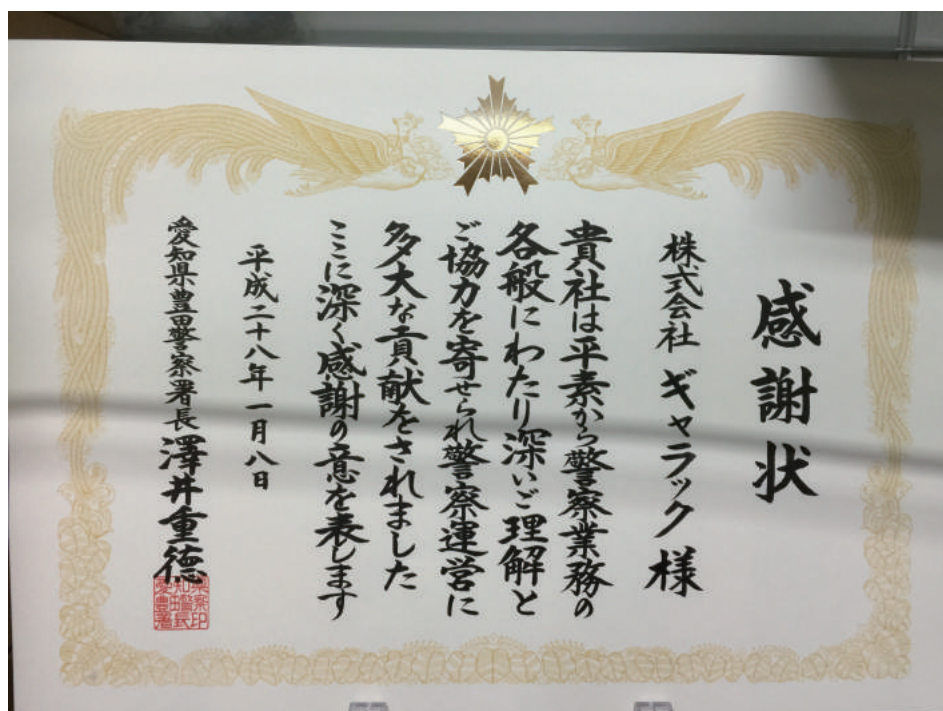 感謝状
株式会社 ギャラック 様
貴社は平素から警察業務の
各般にわたり深いご理解と
ご協力を寄せられ警察運営に
多大な貢献をされました
ここに深く感謝の意を表します
平成二十八年一月八日
愛知県豊田警察署長 澤井重徳